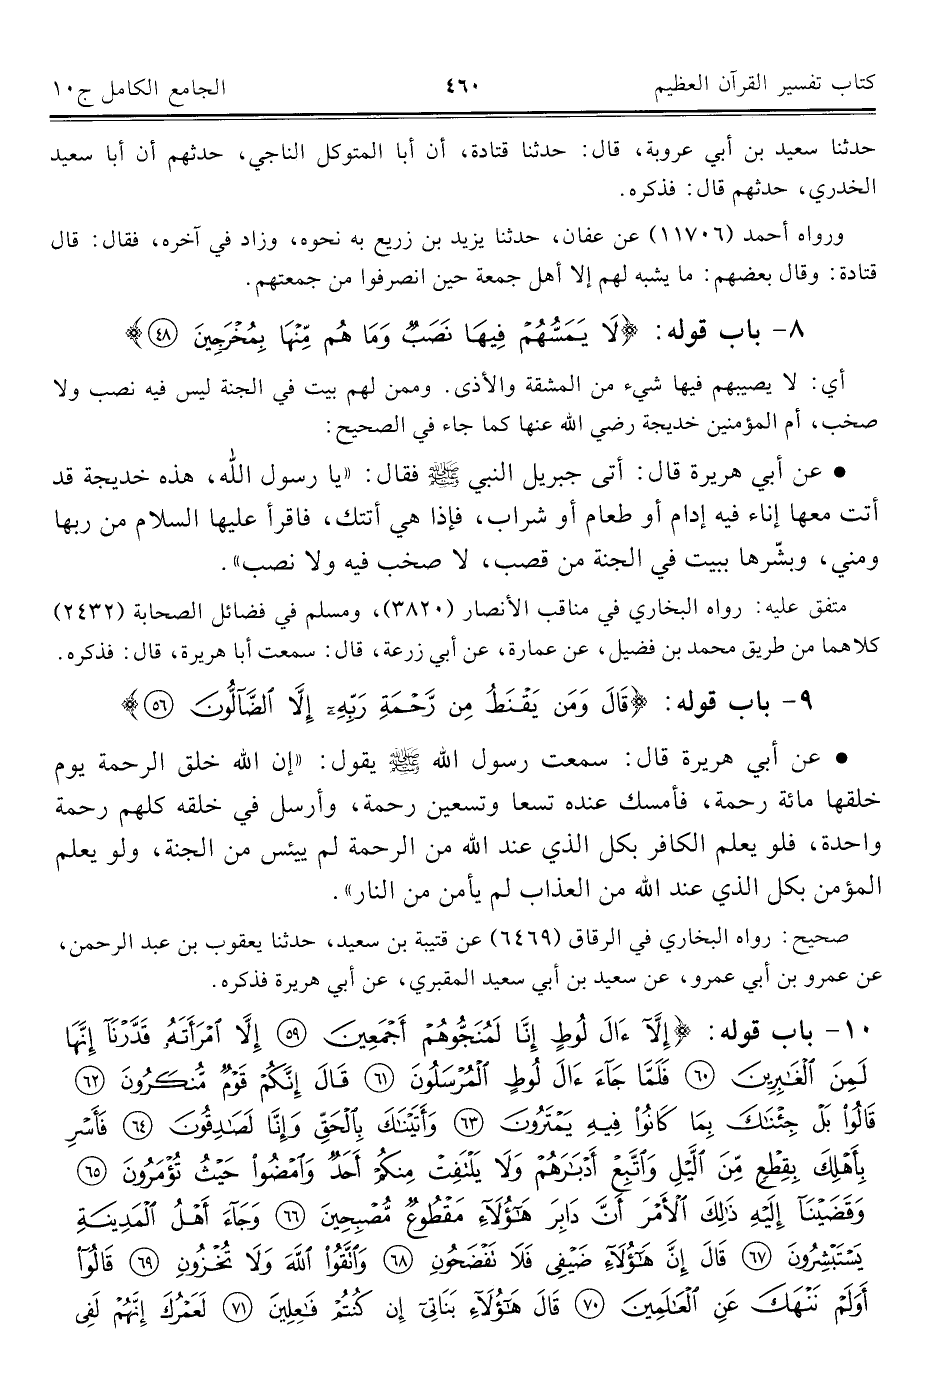 كتاب تفسير القرآن العظيم ٤٦٠ الجامع الكامل ج١٠
حدثنا سعيد بن أبي عروبة، قال: حدثنا قتادة، أن أبا المتوكل الناجي، حدثهم أن أبا سعيد
الخدري، حدثهم قال: فذكره.
ورواه أحمد (١١٧٠٦) عن عفان، حدثنا يزيد بن زريع به نحوه، وزاد في آخره، فقال: قال
قتادة: وقال بعضهم: ما يشبه لهم إلا أهل جمعة حين انصرفوا من جمعتهم.
٨- باب قوله: ﴿لَا يَمَسُّهُمْ فِيهَا نَصَبٌ وَمَا هُم مِّنْهَا بِمُخْرَجِينَ ٤٨﴾
أي: لا يصيبهم فيها شيء من المشقة والأذى. وممن لهم بيت في الجنة ليس فيه نصب ولا
صخب، أم المؤمنين خديجة رضي الله عنها كما جاء في الصحيح:
• عن أبي هريرة قال: أتى جبريل النبي ﷺ فقال: «يا رسول الله، هذه خديجة قد
أتت معها إناء فيه إدام أو طعام أو شراب، فإذا هي أتتك، فاقرأ عليها السلام من ربها
ومني، وبشّرها ببيت في الجنة من قصب، لا صخب فيه ولا نصب».
متفق عليه: رواه البخاري في مناقب الأنصار (٣٨٢٠)، ومسلم في فضائل الصحابة (٢٤٣٢)
كلاهما من طريق محمد بن فضيل، عن عمارة، عن أبي زرعة، قال: سمعت أبا هريرة، قال: فذكره.
٩- باب قوله: ﴿قَالَ وَمَن يَقْنَطُ مِن رَّحْمَةِ رَبِّهِۦٓ إِلَّا ٱلضَّآلُّونَ ٥٦﴾
• عن أبي هريرة قال: سمعت رسول الله ﷺ يقول: «إن الله خلق الرحمة يوم
خلقها مائة رحمة، فأمسك عنده تسعا وتسعين رحمة، وأرسل في خلقه كلهم رحمة
واحدة، فلو يعلم الكافر بكل الذي عند الله من الرحمة لم ييئس من الجنة، ولو يعلم
المؤمن بكل الذي عند الله من العذاب لم يأمن من النار».
صحيح: رواه البخاري في الرقاق (٦٤٦٩) عن قتيبة بن سعيد، حدثنا يعقوب بن عبد الرحمن،
عن عمرو بن أبي عمرو، عن سعيد بن أبي سعيد المقبري، عن أبي هريرة فذكره.
١٠- باب قوله: ﴿إِلَّآ ءَالَ لُوطٍ إِنَّا لَمُنَجُّوهُمْ أَجْمَعِينَ ٥٩ إِلَّا ٱمْرَأَتَهُۥ قَدَّرْنَآ إِنَّهَا
لَمِنَ ٱلْغَٰبِرِينَ ٦٠ فَلَمَّا جَآءَ ءَالَ لُوطٍ ٱلْمُرْسَلُونَ ٦١ قَالَ إِنَّكُمْ قَوْمٌ مُّنكَرُونَ ٦٢
قَالُوا۟ بَلْ جِئْنَٰكَ بِمَا كَانُوا۟ فِيهِ يَمْتَرُونَ ٦٣ وَأَتَيْنَٰكَ بِٱلْحَقِّ وَإِنَّا لَصَٰدِقُونَ ٦٤ فَأَسْرِ
بِأَهْلِكَ بِقِطْعٍ مِّنَ ٱلَّيْلِ وَٱتَّبِعْ أَدْبَٰرَهُمْ وَلَا يَلْتَفِتْ مِنكُمْ أَحَدٌ وَٱمْضُوا۟ حَيْثُ تُؤْمَرُونَ ٦٥
وَقَضَيْنَآ إِلَيْهِ ذَٰلِكَ ٱلْأَمْرَ أَنَّ دَابِرَ هَٰٓؤُلَآءِ مَقْطُوعٌ مُّصْبِحِينَ ٦٦ وَجَآءَ أَهْلُ ٱلْمَدِينَةِ
يَسْتَبْشِرُونَ ٦٧ قَالَ إِنَّ هَٰٓؤُلَآءِ ضَيْفِى فَلَا تَفْضَحُونِ ٦٨ وَٱتَّقُوا۟ ٱللَّهَ وَلَا تُخْزُونِ ٦٩ قَالُوٓا۟
أَوَلَمْ نَنْهَكَ عَنِ ٱلْعَٰلَمِينَ ٧٠ قَالَ هَٰٓؤُلَآءِ بَنَاتِىٓ إِن كُنتُمْ فَٰعِلِينَ ٧١ لَعَمْرُكَ إِنَّهُمْ لَفِى